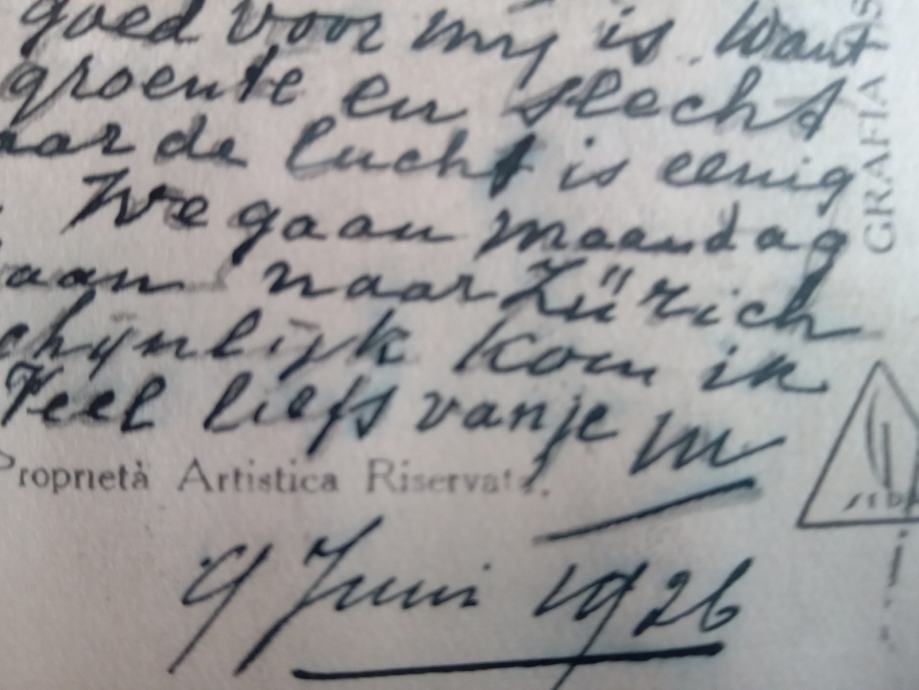 goed voor mij is. Want
groente en slecht
aar de lucht is eenig
We gaan maandag
aan naar Zürich
chijnlijk kom ik
Veel liefs van je M
Proprietà Artistica Riservata.
9 Juni 1926
GRAFIA